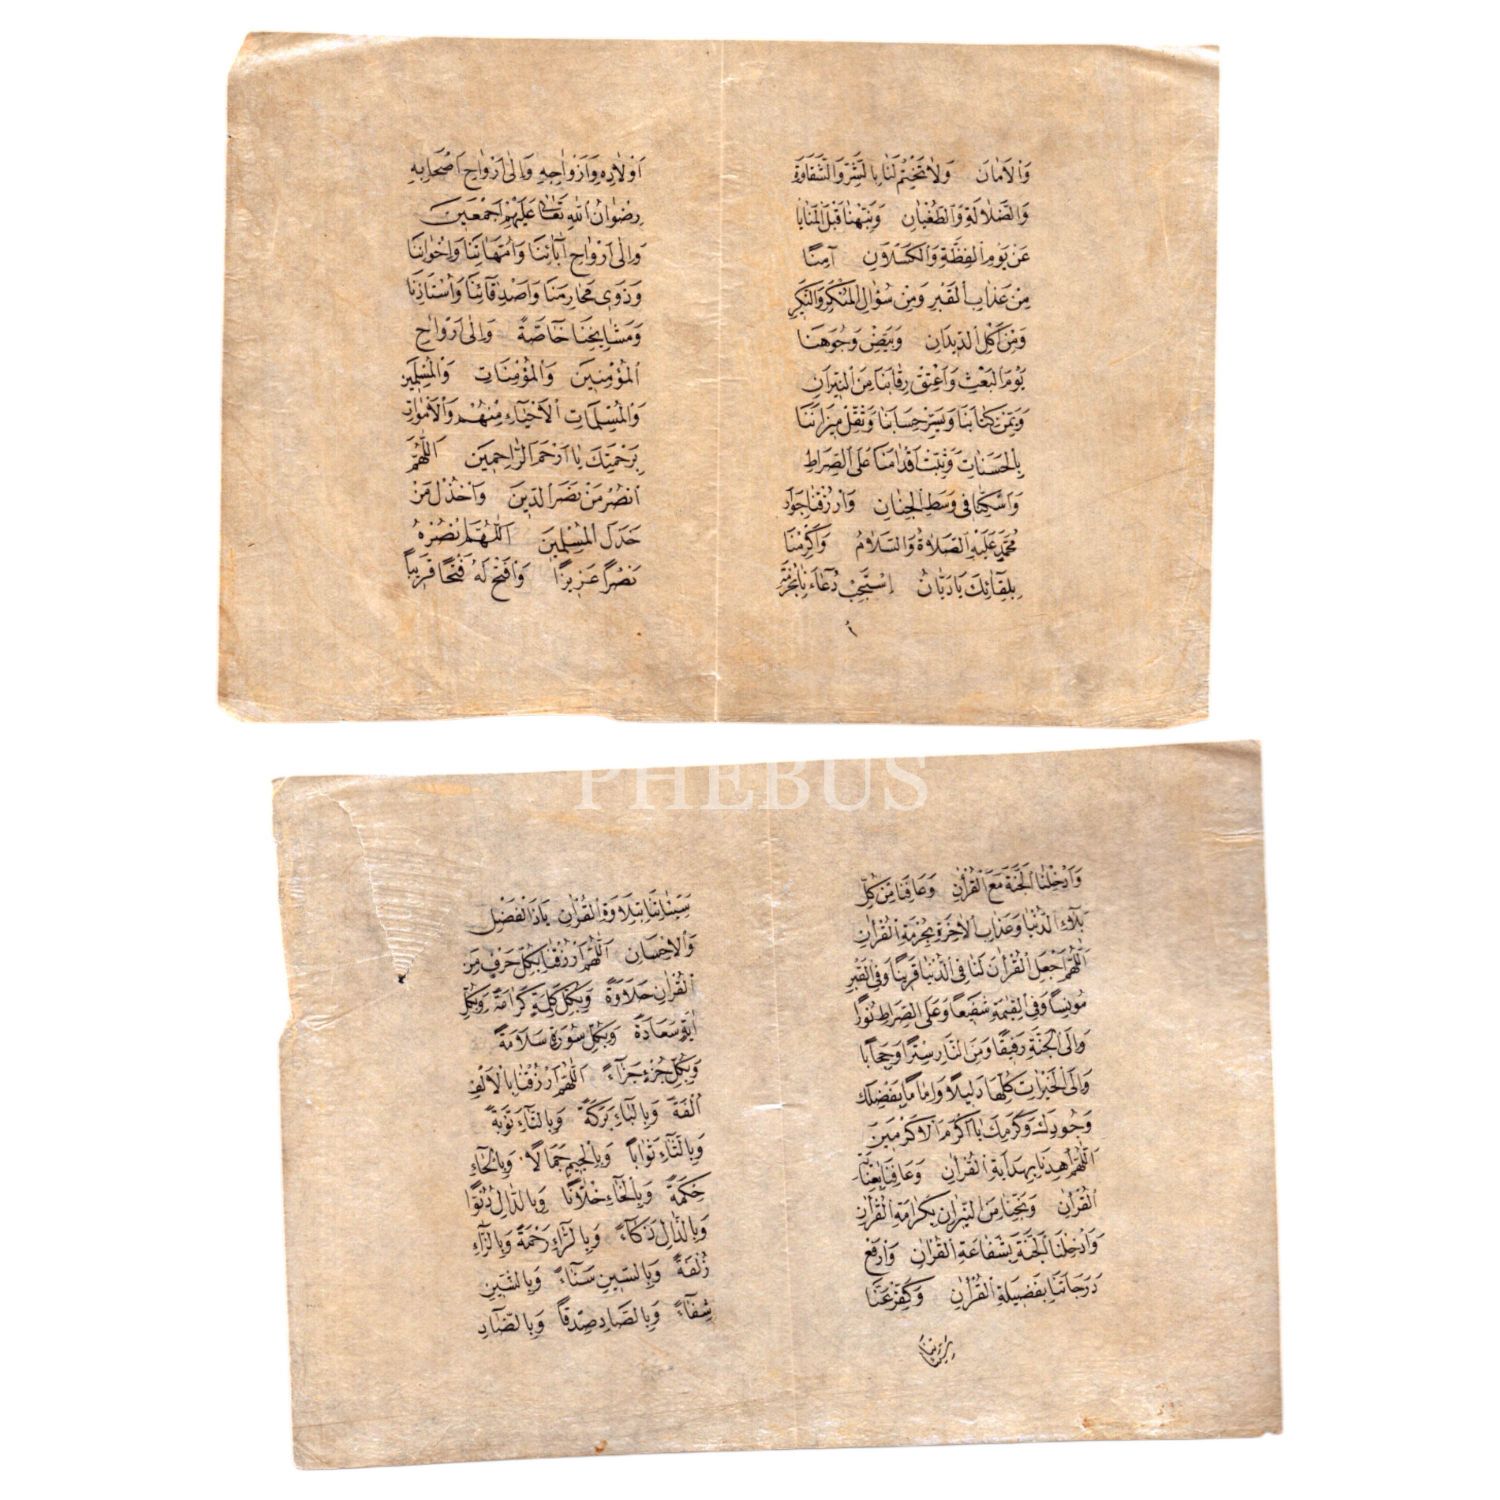 وَالْاَمَانَ وَلَا تَخْتِمْ لَنَا بِالشَّرِّ وَالشَّقَاوَةِ
وَالضَّلَالَةِ وَالطُّغْيَانِ وَنَبِّهْنَا قَبْلَ الْمَنَايَا
عَنْ يَوْمِ وَالْكَسْلَانِ آمِنَّا
مِنْ عَذَابِ الْقَبْرِ وَمِنْ سُؤَالِ الْمُنْكَرِ وَالنَّكِيرِ
وَمِنْ اَكْلِ الدِّيدَانِ وَبَيِّضْ وُجُوهَنَا
يَوْمَ الْبَعْثِ وَاَعْتِقْ رِقَابَنَا مِنَ النِّيرَانِ
وَيَمِّنْ كِتَابَنَا وَيَسِّرْ حِسَابَنَا وَثَقِّلْ مِيزَانَنَا
بِالْحَسَنَاتِ وَثَبِّتْ اَقْدَامَنَا عَلَى الصِّرَاطِ
وَاَسْكِنَّا فِى وَسَطِ الْجِنَانِ وَارْزُقْنَا جِوَارَ
مُحَمَّدٍ عَلَيْهِ الصَّلَاةُ وَالسَّلَامُ وَاَكْرِمْنَا
بِلِقَائِكَ يَا دَيَّانُ اِسْتَجِبْ دُعَاءَنَا بِحُرْمَةِ
اَوْلَادِهِ وَاَزْوَاجِهِ وَاِلٰى اَرْوَاحِ اَصْحَابِهِ
رِضْوَانُ اللّٰهِ تَعَالٰى عَلَيْهِمْ اَجْمَعِينَ
وَاِلٰى اَرْوَاحِ اٰبَائِنَا وَاُمَّهَاتِنَا وَاِخْوَانِنَا
وَذَوِى مَحَارِمِنَا وَاَصْدِقَائِنَا وَاُسْتَاذِنَا
وَمَشَايِخِنَا خَاصَّةً وَاِلٰى اَرْوَاحِ
الْمُؤْمِنِينَ وَالْمُؤْمِنَاتِ وَالْمُسْلِمِينَ
وَالْمُسْلِمَاتِ الْاَحْيَاءِ مِنْهُمْ وَالْاَمْوَاتِ
بِرَحْمَتِكَ يَا اَرْحَمَ الرَّاحِمِينَ اَللّٰهُمَّ
انْصُرْ مَنْ نَصَرَ الدِّينَ وَاخْذُلْ مَنْ
خَذَلَ الْمُسْلِمِينَ اَللّٰهُمَّ انْصُرْهُ
نَصْرًا عَزِيزًا وَافْتَحْ لَهُ فَتْحًا قَرِيبًا
وَاَدْخِلْنَا الْجَنَّةَ مَعَ الْقُرْاٰنِ وَعَافِنَا مِنْ كُلِّ
بَلَاءِ الدُّنْيَا وَعَذَابِ الْاٰخِرَةِ بِحُرْمَةِ الْقُرْاٰنِ
اَللّٰهُمَّ اجْعَلِ الْقُرْاٰنَ لَنَا فِى الدُّنْيَا قَرِينًا وَفِى الْقَبْرِ
مُونِسًا وَفِى الْقِيٰمَةِ شَفِيعًا وَعَلَى الصِّرَاطِ نُورًا
وَاِلَى الْجَنَّةِ رَفِيقًا وَمِنَ النَّارِ سِتْرًا وَحِجَابًا
وَاِلَى الْخَيْرَاتِ كُلِّهَا دَلِيلًا وَاِمَامًا بِفَضْلِكَ
وَجُودِكَ وَكَرَمِكَ يَا اَكْرَمَ الْاَكْرَمِينَ
اَللّٰهُمَّ اهْدِنَا بِهِدَايَةِ الْقُرْاٰنِ وَعَافِنَا بِعِنَايَةِ
الْقُرْاٰنِ وَنَجِّنَا مِنَ النِّيرَانِ بِكَرَامَةِ الْقُرْاٰنِ
وَاَدْخِلْنَا الْجَنَّةَ بِشَفَاعَةِ الْقُرْاٰنِ وَارْفَعْ
دَرَجَاتِنَا بِفَضِيلَةِ الْقُرْاٰنِ وَكَفِّرْ عَنَّا
سَيِّئَاتِنَا
سَيِّئَاتِنَا بِتِلَاوَةِ الْقُرْاٰنِ يَا ذَا الْفَضْلِ
وَالْاِحْسَانِ اَللّٰهُمَّ ارْزُقْنَا بِكُلِّ حَرْفٍ مِنَ
الْقُرْاٰنِ حَلَاوَةً وَبِكُلِّ كَلِمَةٍ كَرَامَةً وَبِكُلِّ
اٰيَةٍ سَعَادَةً وَبِكُلِّ سُورَةٍ سَلَامَةً
وَبِكُلِّ جُزْءٍ جَزَاءً اَللّٰهُمَّ ارْزُقْنَا بِالْاَلِفِ
اُلْفَةً وَبِالْبَاءِ بَرَكَةً وَبِالتَّاءِ تَوْبَةً
وَبِالثَّاءِ ثَوَابًا وَبِالْجِيمِ جَمَالًا وَبِالْحَاءِ
حِكْمَةً وَبِالْخَاءِ خُلَّانًا وَبِالدَّالِ دُنُوًّا
وَبِالذَّالِ ذَكَاءً وَبِالرَّاءِ رَحْمَةً وَبِالزَّاءِ
زُلْفَةً وَبِالسِّينِ سَنَاءً وَبِالشِّينِ
شِفَاءً وَبِالصَّادِ صِدْقًا وَبِالضَّادِ
PHEBUS